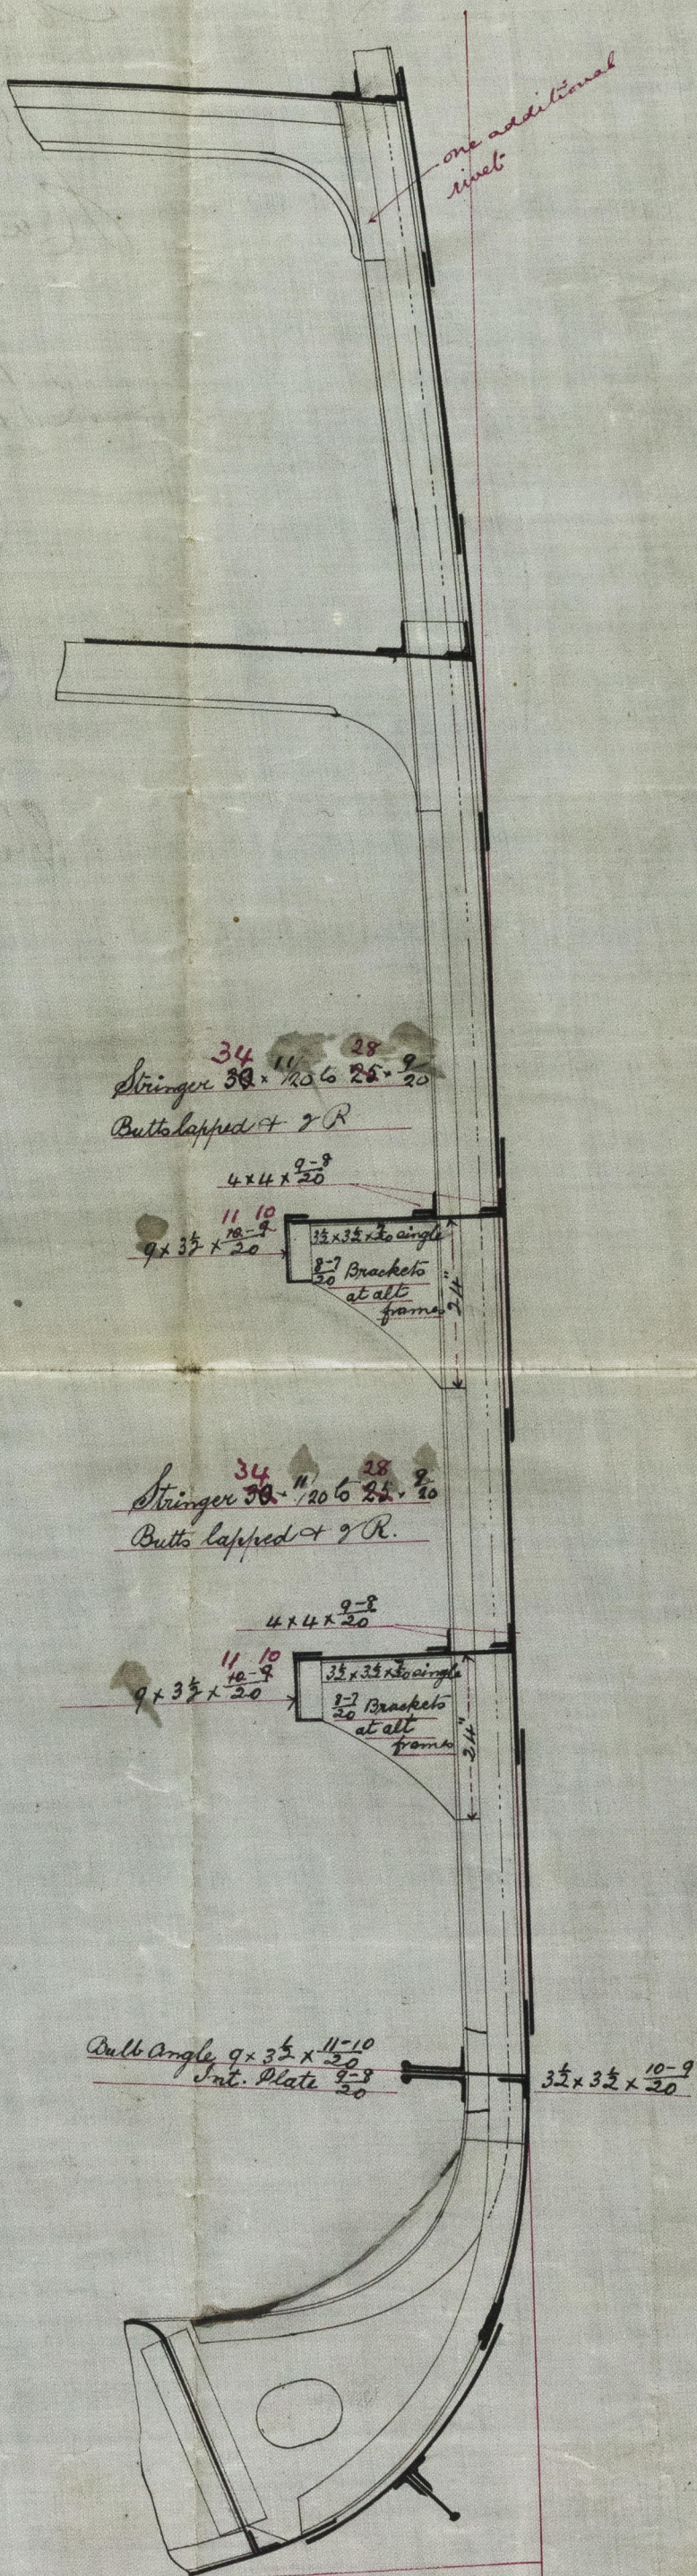 one additional
rivet
34 28
Stringer 30 × 11/20 to 25 × 9/20
Butts lapped & 2 R
4 × 4 × 9-8/20
11 10
9 × 3 1/2 × 10-9/20
3 1/2 × 3 1/2 × 7/20 angle
8-7/20 Brackets
at alt
frames
24"
34 28
Stringer 30 × 11/20 to 25 × 9/20
Butts lapped & 2 R.
4 × 4 × 9-8/20
11 10
9 × 3 1/2 × 10-9/20
3 1/2 × 3 1/2 × 7/20 angle
8-7/20 Brackets
at alt
frames
24"
Bulb Angle 9 × 3 1/2 × 11-10/20
Int. Plate 9-8/20
3 1/2 × 3 1/2 × 10-9/20